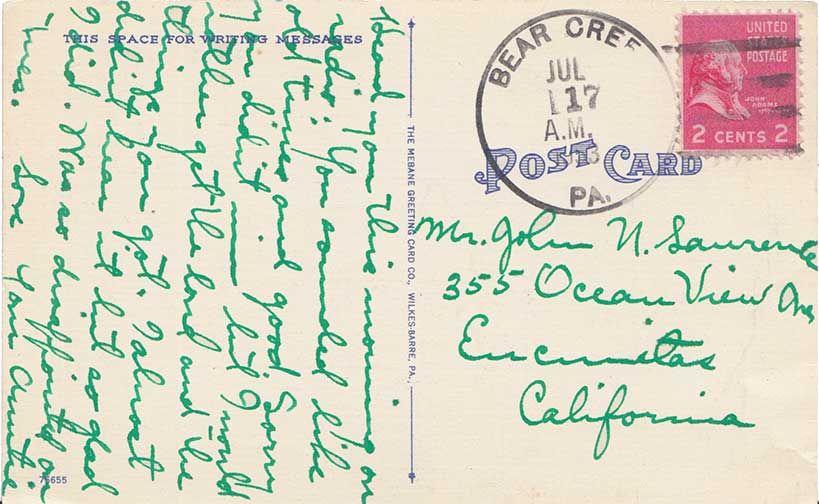 THIS SPACE FOR WRITING MESSAGES
Heard you this morning on
radio: You sounded like
old times and good. Sorry
you didn't win but I would
rather get the and the
things you got. I almost
didn't hear it but so glad
I did. Was so disappointed on
Tues. Love your Auntie
75655
THE MEBANE GREETING CARD CO., WILKES-BARRE, PA.
BEAR CREE
JUL
17
A.M.
PA.
UNITED
STATES
POSTAGE
JOHN
ADAMS
2 CENTS 2
POST CARD
Mr. John N. Lawrence
355 Ocean View Ave
Encinitas
California